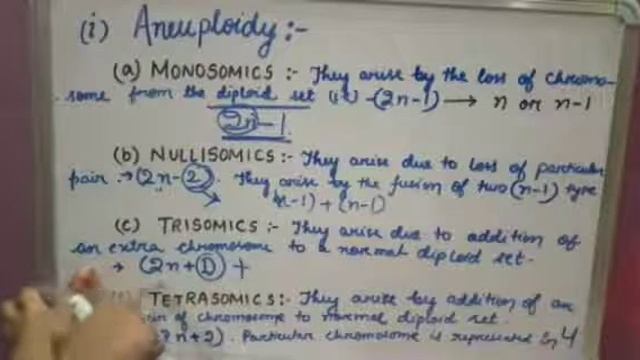 (i) Aneuploidy :-
(a) MONOSOMICS :- They arise by the loss of chromo-
some from the diploid set (2n-1) → n or n-1
2n-1
(b) NULLISOMICS :- They arise due to loss of particular
pair. → (2n-2). They arise by the fusion of two (n-1) type
(n-1) + (n-1)
(c) TRISOMICS :- They arise due to addition of
an extra chromosome to a normal diploid set.
→ (2n+1) +
TETRASOMICS :- They arise by addition of an
of chromosome to normal diploid set.
2n+2). Particular chromosome is represented in 4